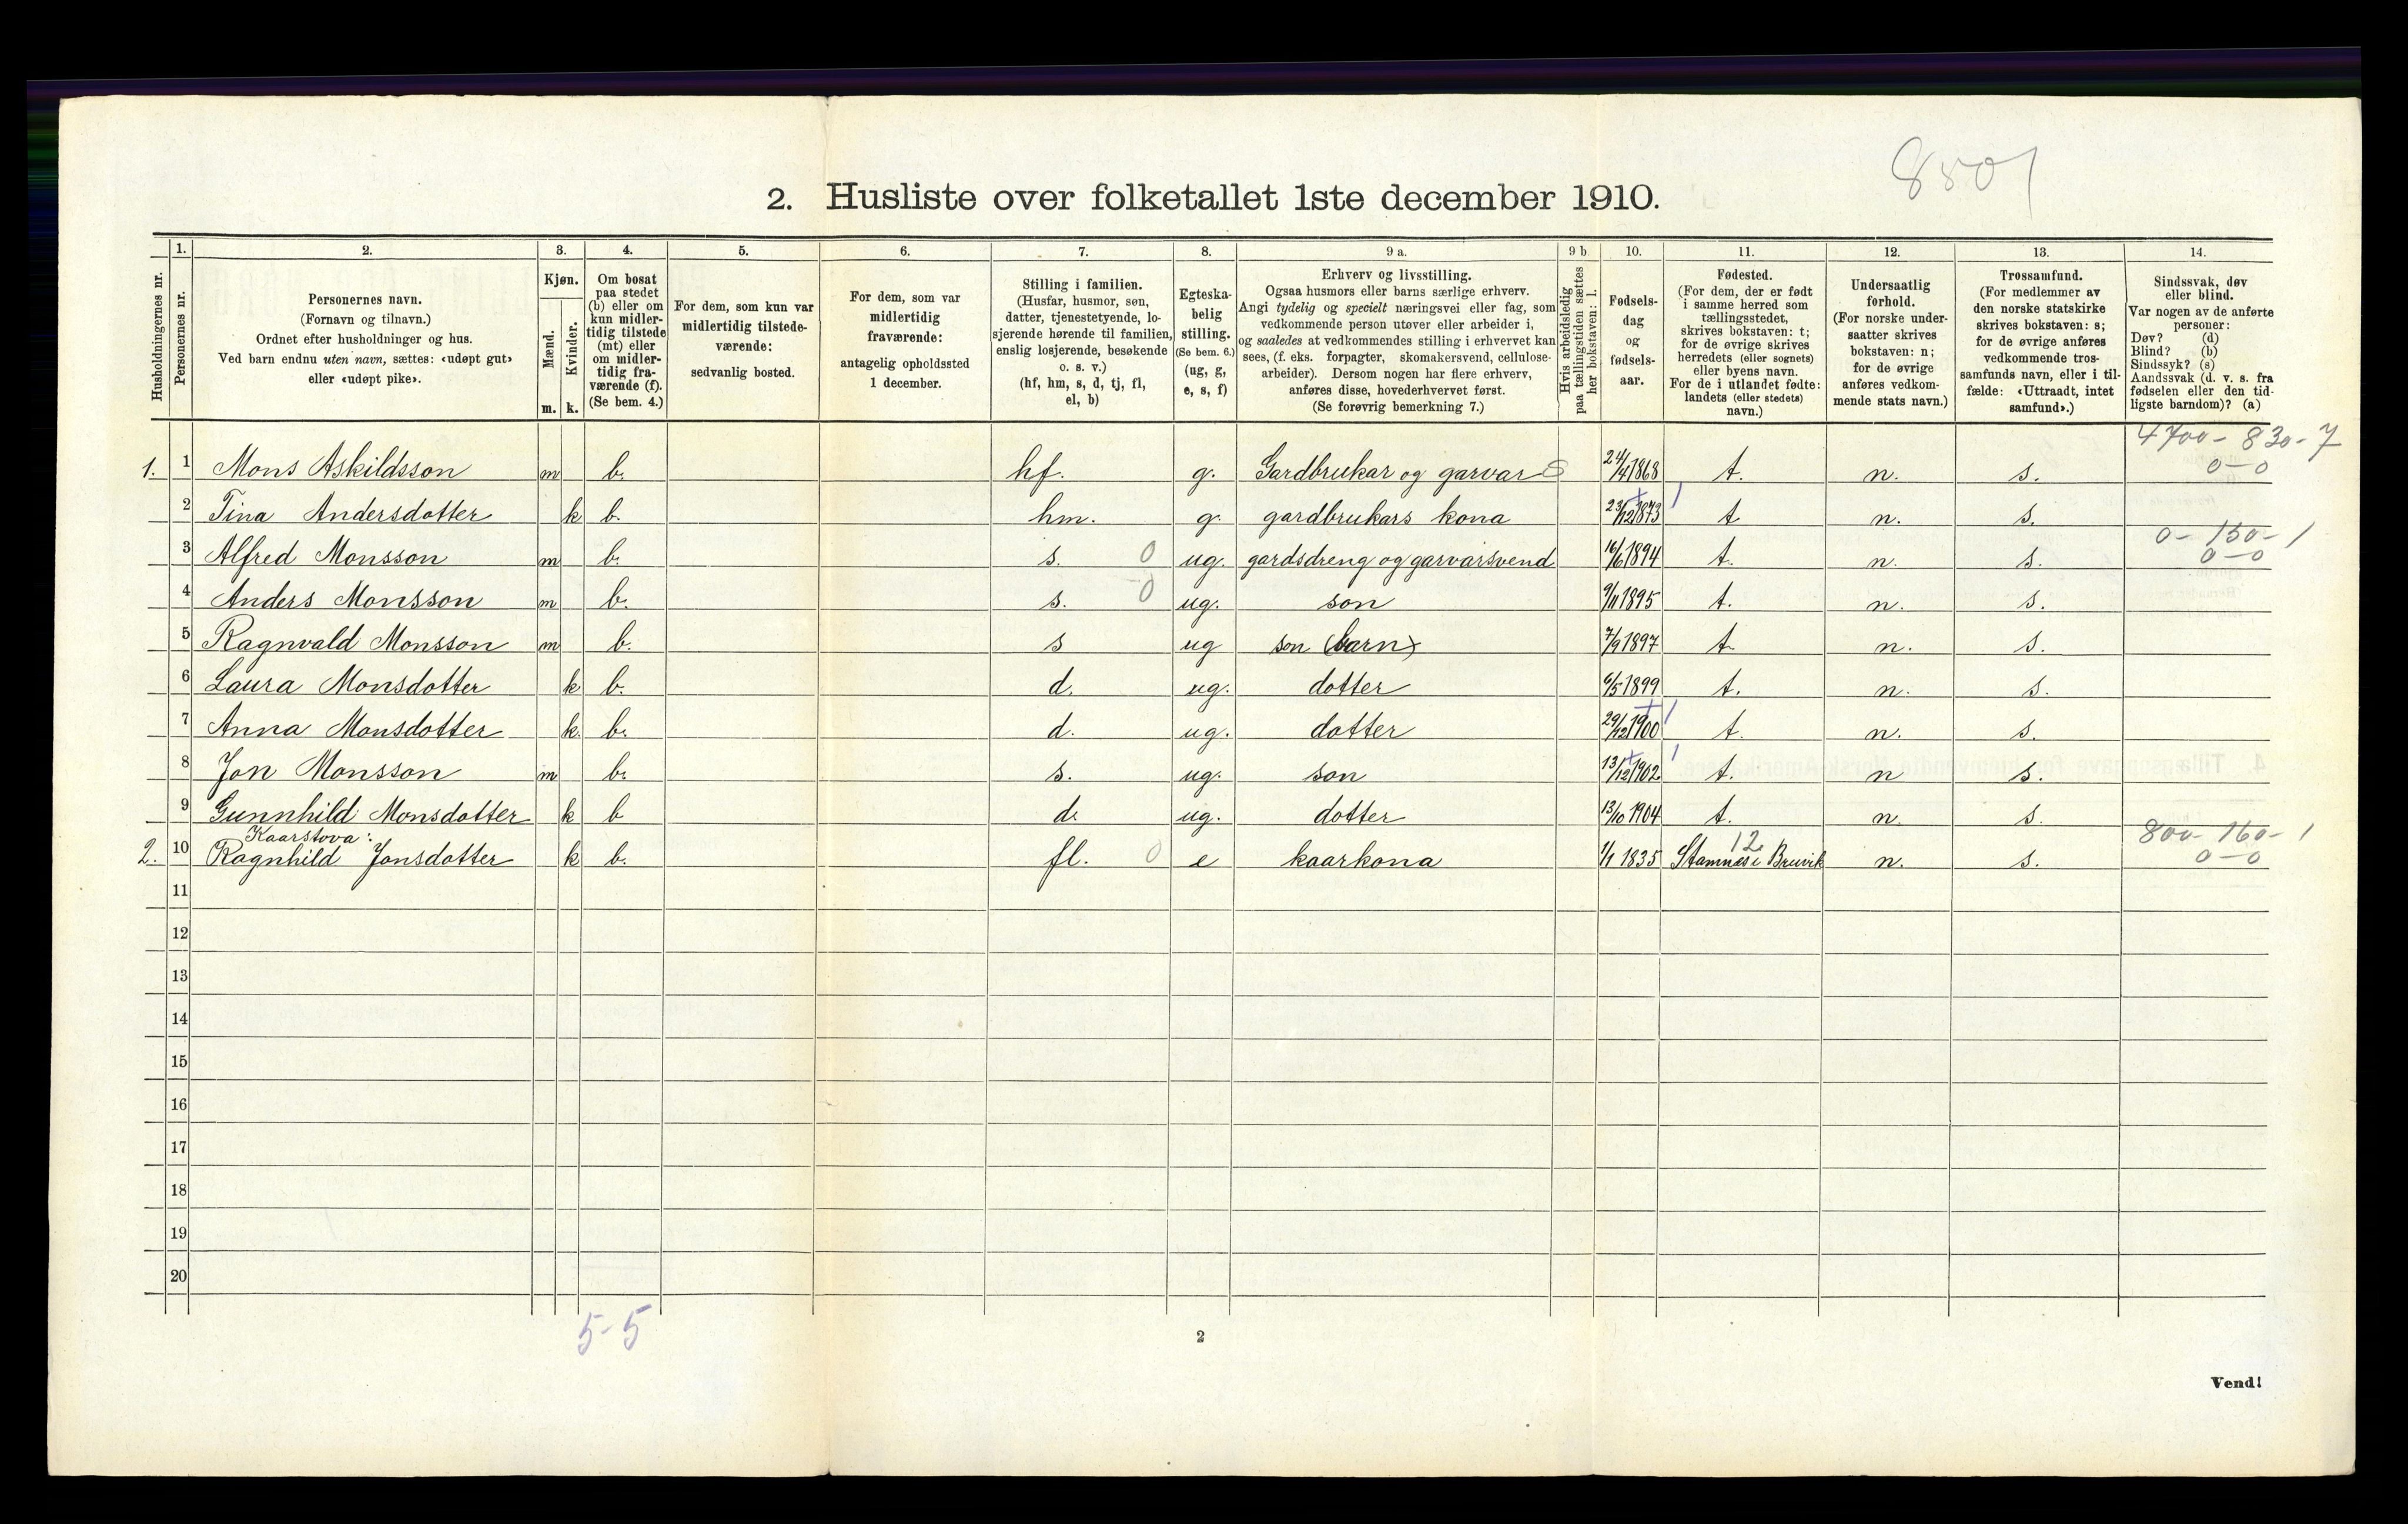 8801
2. Husliste over folketallet 1ste december 1910.
Husholdningernes nr.
1. Personernes nr.
2. Personernes navn. (Fornavn og tilnavn.) Ordnet efter husholdninger og hus. Ved barn endnu uten navn, sættes: «udøpt gut» eller «udøpt pike».
3. Kjøn. Mænd. m. Kvinder. k.
4. Om bosat paa stedet (b) eller om kun midlertidig tilstede (mt) eller om midlertidig fraværende (f). (Se bem. 4.)
5. For dem, som kun var midlertidig tilstedeværende: sedvanlig bosted.
6. For dem, som var midlertidig fraværende: antagelig opholdssted 1 december.
7. Stilling i familien. (Husfar, husmor, søn, datter, tjenestetyende, losjerende hørende til familien, enslig losjerende, besøkende o. s. v.) (hf, hm, s, d, tj, fl, el, b)
8. Egteskabelig stilling. (Se bem. 6.) (ug, g, e, s, f)
9 a. Erhverv og livsstilling. Ogsaa husmors eller barns særlige erhverv. Angi tydelig og specielt næringsvei eller fag, som vedkommende person utøver eller arbeider i, og saaledes at vedkommendes stilling i erhvervet kan sees, (f. eks. forpagter, skomakersvend, cellulosearbeider). Dersom nogen har flere erhverv, anføres disse, hovederhvervet først. (Se forøvrig bemerkning 7.)
9 b Hvis arbeidsledig paa tællingstiden sættes her bokstaven: l.
10. Fødselsdag og fødselsaar.
11. Fødested. (For dem, der er født i samme herred som tællingsstedet, skrives bokstaven: t; for de øvrige skrives herredets (eller sognets) eller byens navn. For de i utlandet fødte: landets (eller stedets) navn.)
12. Undersaatlig forhold. (For norske undersaatter skrives bokstaven: n; for de øvrige anføres vedkommende stats navn.)
13. Trossamfund. (For medlemmer av den norske statskirke skrives bokstaven: s; for de øvrige anføres vedkommende trossamfunds navn, eller i tilfælde: «Uttraadt, intet samfund».)
14. Sindssvak, døv eller blind. Var nogen av de anførte personer: Døv? (d) Blind? (b) Sindssyk? (s) Aandssvak (d. v. s. fra fødselen eller den tidligste barndom)? (a)
4700- 830- 7
1. 1 Mons Askildsson m b. hf. g. Gardbrukar og garvar 24/4 1868 t. n. s. 0-0
2 Tina Andersdotter k b. hm. g. gardbrukars kona 23/12 1873 t n. s.
0- 150- 1
3 Alfred Monsson m b. s. 0 ug. gardsdreng og garvarsvend 16/6 1894 t. n. s. 0-0
4 Anders Monsson m b. s. 0 ug. son 9/11 1895 t. n. s.
5 Ragnvald Monsson m b. s ug son (barn) 7/9 1897 t. n. s.
6 Laura Monsdotter k b. d. ug. dotter 6/5 1899 t. n. s.
7 Anna Monsdotter k. b. d. ug. dotter 29/12 1900 t. n. s.
8 Jon Monsson m b. s. ug. son 13/12 1902 t. n s.
9 Gunnhild Monsdotter k b d. ug. dotter 13/10 1904 t. n. s.
Kaarstova: 12 800- 160- 1
2. 10 Ragnhild Jonsdotter k b. fl. 0 e kaarkona 1/1 1835 Stamnes i Bruvik n. s. 0-0
11
12
13
14
15
16
17
18
19
20
5-5
2
Vend!